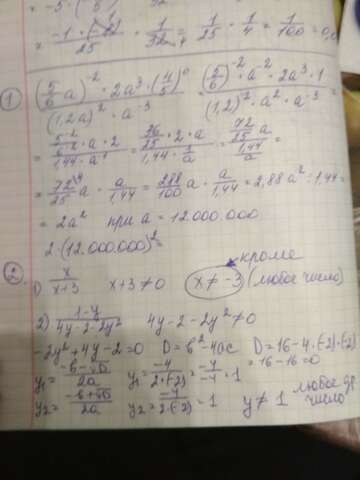 = -1·(-32) / 25 · 1/32·4 = 1/25 · 1/4 = 1/100 = 0,0
① (5/6 a)^-2 · 2a^3 · (4/5)^0 / (1,2a)^2 · a^-3 = (5/6)^-2 · a^-2 · 2a^3 · 1 / (1,2)^2 · a^2 · a^-3 =
= 5^-2/6^-2 · a · 2 / 1,44 · a^-1 = 36/25 · 2 · a / 1,44 · 1/a = 72/25 a / 1,44/a =
= 72/25 a · a/1,44 = 288/100 a · a/1,44 = 2,88a^2 : 1,44 =
= 2a^2 при a = 12.000.000
2·(12.000.000)^2 =
кроме
② 1) x/x+3 x+3≠0 x≠-3 (любое число)
2) 1-y/4y-2-2y^2 4y-2-2y^2≠0
-2y^2+4y-2=0 D=b^2-4ac D=16-4·(-2)·(-2)
=16-16=0
y1 = -b-√D/2a y1 = -4/2·(-2) = -4/-4 = 1
y2 = -b+√D/2a y2 = -4/2·(-2) = 1 y≠1 любое др. число